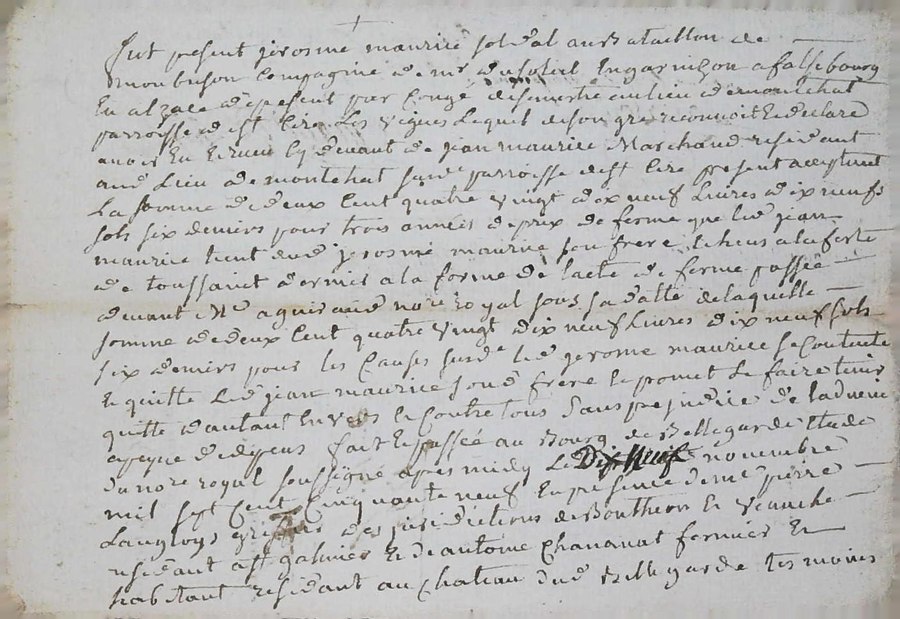 fut present jerosme maurice soldat au Bataillon de
monbrison Compagnie de mr dusoleil En garnizon a falsebourg
En alzace depresent par congé desmestre au lieu de montchat
parroisse de st Cire Les vignes Lequel de son gre reconnoit Et declare
avoir Eu Et receu cy devant de jean maurice Marchand residant
aud Lieu de montchat surd parroisse de st Cire present acceptant
La somme de deux Cent quatre vingt dix neuf Livres dix neufs
sols six deniers pour trois années de prix de ferme que led jean
maurice tient dud jerosme maurice son frere Echeus a la feste
de toussaint dernier a la forme de lacte de ferme passée
devant Me aguiraud nore royal sous sa datte de laquelle
somme de deux Cent quatre vingt dix neuf Livres dix neuf sols
six deniers pour les Causes surd led jerome maurice se Contente
Et quitte led jean maurice sond frere Et promet Le faire tenir
quitte d'autant Envers Et Contre tous sans prejudice de
apeyne de depens fait Et passée au Bourg de Bellegarde Etude
du nore royal soussigné apres midy Le Dix Neuf novembre
mil sept Cent Cinquante neuf En presence de me pierre
Langloys greffier des jurisdictions de Bouthéon Et Veauche
residant a st galmier Et de antoine Chananat fermier Et
habitant residant au Chateau dud Bellegarde tesmoins